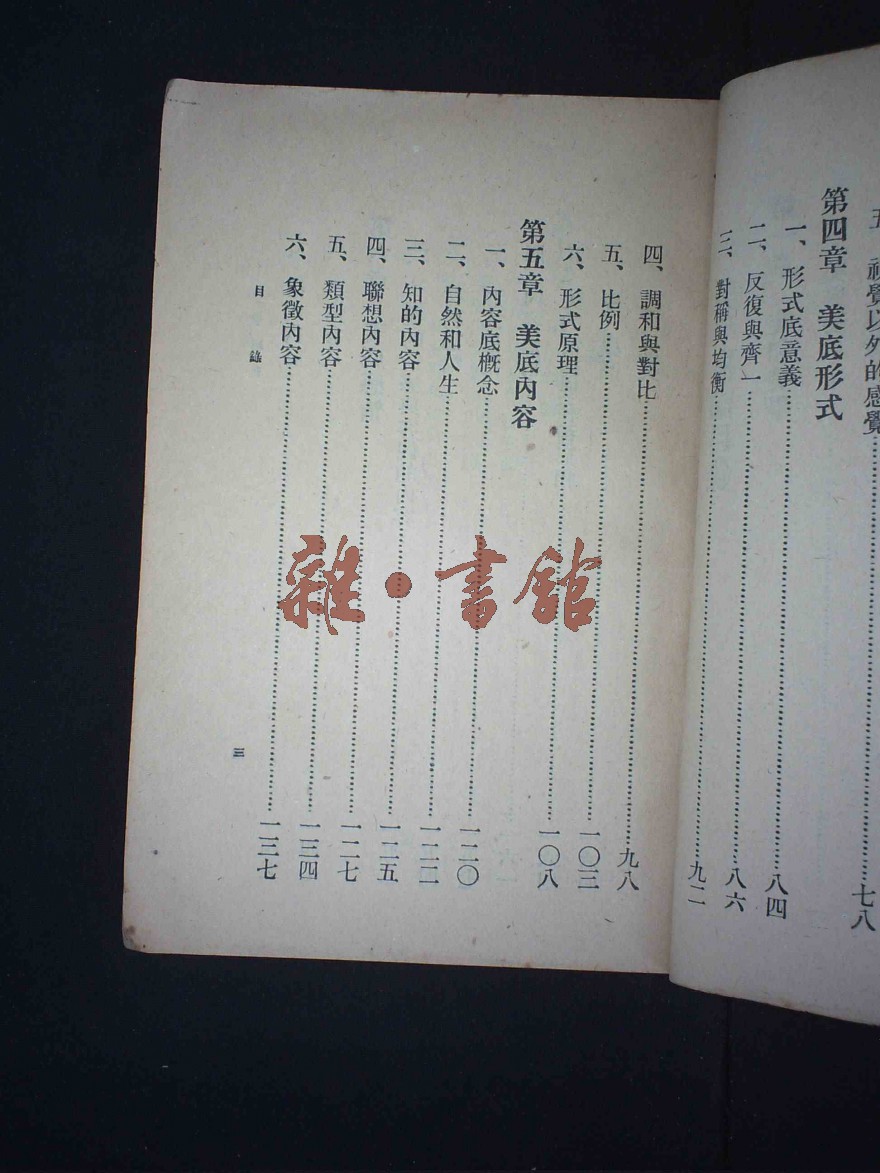 五 視覺以外的感覺……七八
第四章 美底形式
一、形式底意義……八四
二、反復與齊一……八六
三、對稱與均衡……九二
四、調和與對比……九八
五、比例……一〇三
六、形式原理……一〇八
第五章 美底內容
一、內容底概念……一二〇
二、自然和人生……一二二
三、知的內容……一二五
四、聯想內容……一二七
五、類型內容……一三四
六、象徵內容……一三七
目錄
三
雜·書館